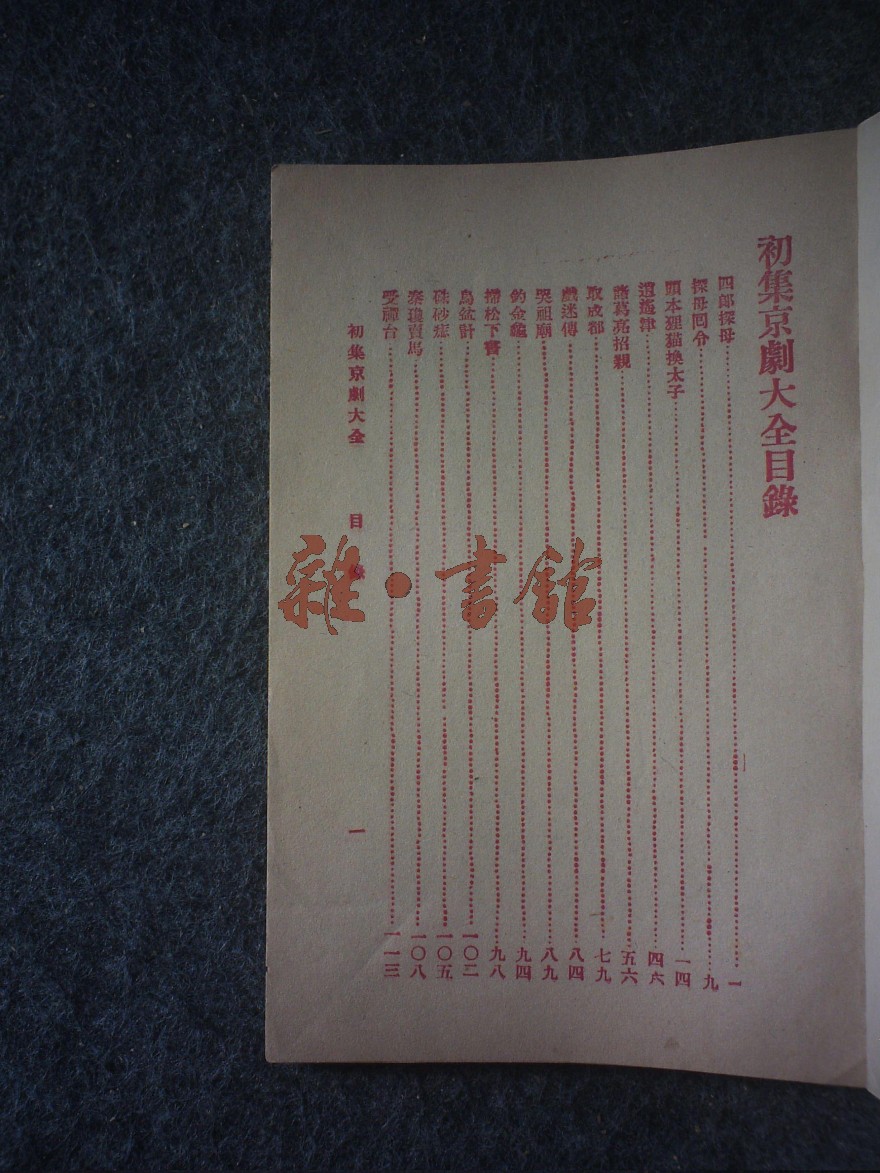 初集京劇大全目錄
四郎探母……一
探母回令……九
頭本狸猫換太子……一四
逍遙津……四六
諸葛亮招親……五六
取成都……七九
戲迷傳……八四
哭祖廟……八九
釣金龜……九四
掃松下書……九八
烏盆計……一〇二
硃砂痣……一〇五
秦瓊賣馬……一〇八
受禪台……一一三
初集京劇大全 目 一
雜·書館